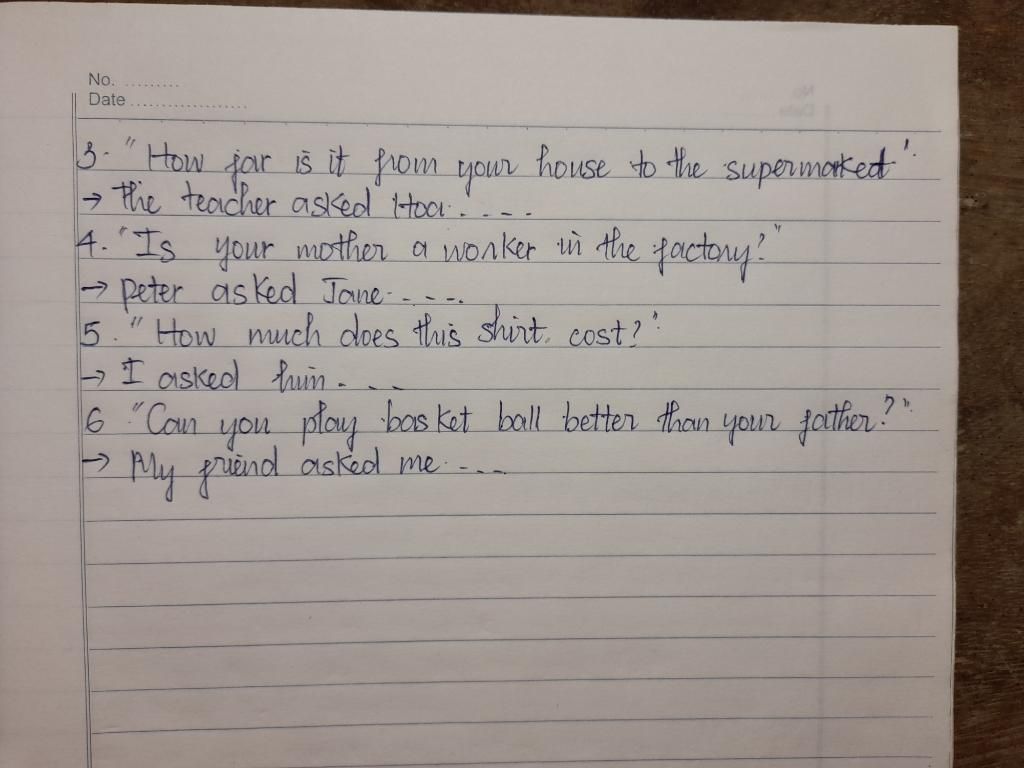 No. .........
Date ...................
3. "How far is it from your house to the supermarked".
→ the teacher asked Hoa. ....
4. "Is your mother a worker in the factory?"
→ peter asked Jane. ....
5. "How much does this shirt. cost?".
→ I asked him. ...
6 "Can you play basket ball better than your father?".
→ My friend asked me. ...